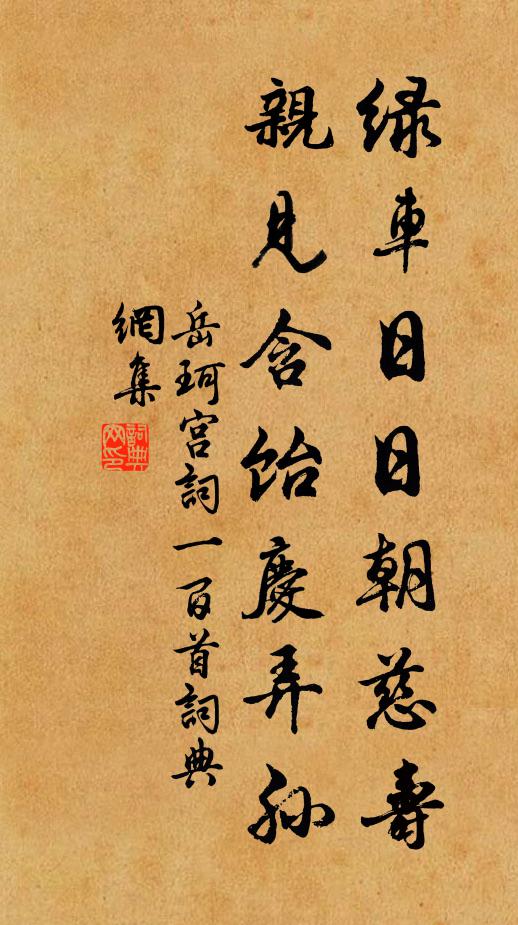 緑車日日朝慈壽
親見含飴慶弄孫
岳珂宮詞一百首詞典
網集
詞典網印